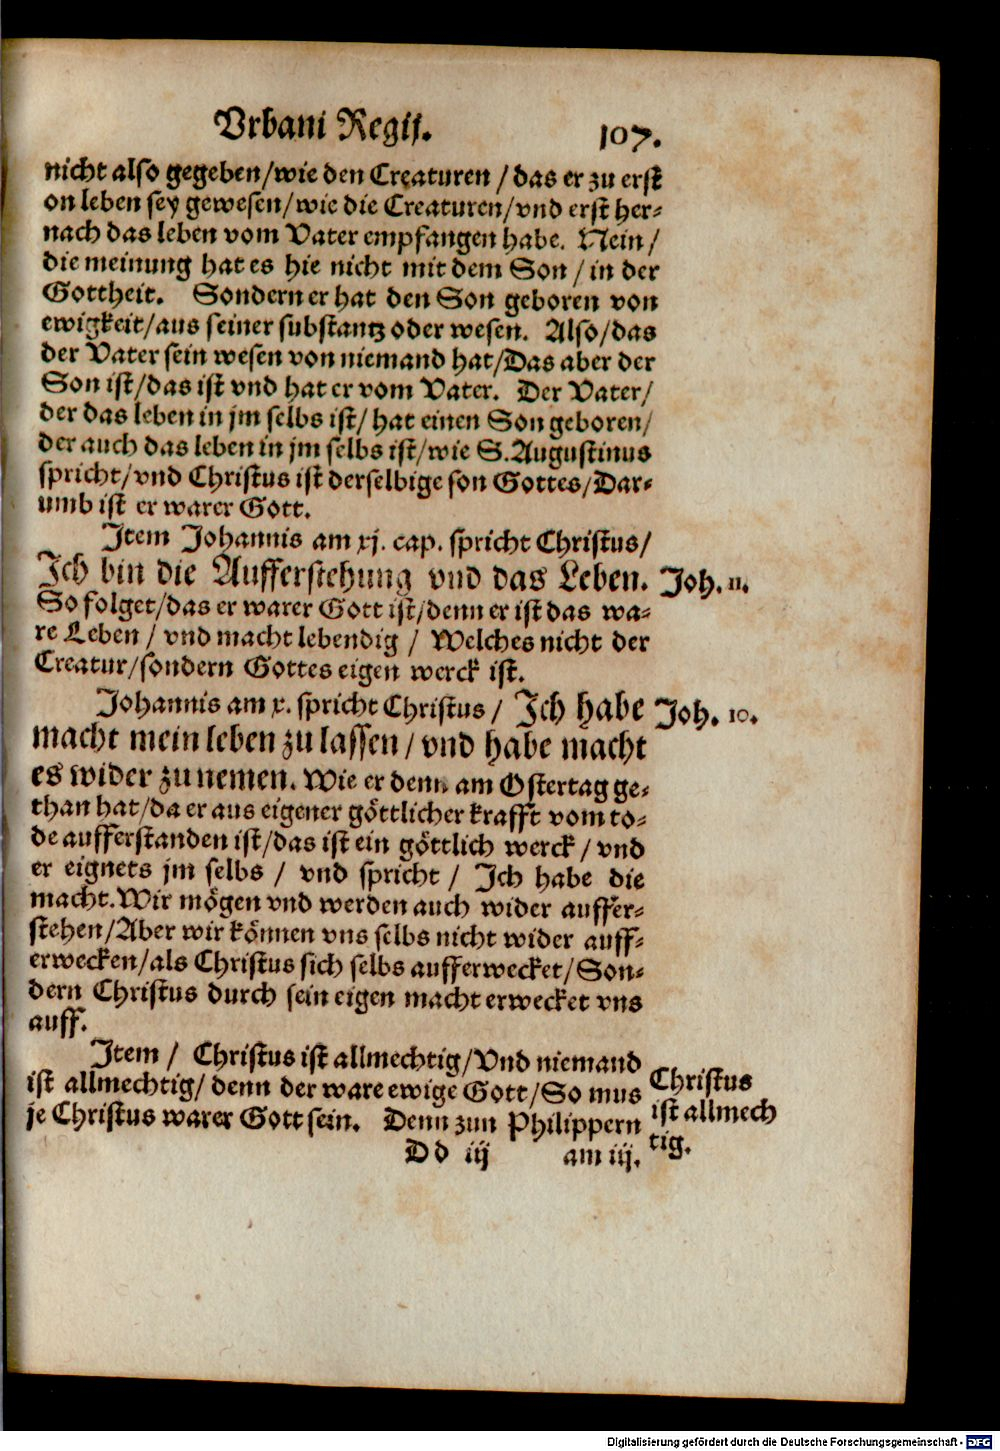 Vrbani Regij. 107.
nicht also gegeben/wie den Creaturen / das er zu erst
on leben sey gewesen/wie die Creaturen/vnd erst her-
nach das leben vom Vater empfangen habe. Nein/
die meinung hat es hie nicht mit dem Son / in der
Gottheit. Sondern er hat den Son geboren von
ewigkeit/aus seiner substantz oder wesen. Also/das
der Vater sein wesen von niemand hat/Das aber der
Son ist/das ist vnd hat er vom Vater. Der Vater/
der das leben in jm selbs ist/ hat einen Son geboren/
der auch das leben in jm selbs ist/wie S. Augustinus
spricht/vnd Christus ist derselbige son Gottes/Dar-
umb ist er warer Gott.
Item Johannis am xj. cap. spricht Christus/
Ich bin die Aufferstehung vnd das Leben. Joh. 11.
So folget/das er warer Gott ist/denn er ist das wa-
re Leben / vnd macht lebendig / Welches nicht der
Creatur/sondern Gottes eigen werck ist.
Johannis am x. spricht Christus / Ich habe Joh. 10.
macht mein leben zu lassen / vnd habe macht
es wider zu nemen. Wie er denn am Ostertag ge-
than hat/da er aus eigener göttlicher krafft vom to-
de aufferstanden ist/das ist ein göttlich werck / vnd
er eignets jm selbs / vnd spricht / Ich habe die
macht. Wir mögen vnd werden auch wider auffer-
stehen/Aber wir können vns selbs nicht wider auff-
erwecken/als Christus sich selbs aufferwecket/Son-
dern Christus durch sein eigen macht erwecket vns
auff.
Item / Christus ist allmechtig/Vnd niemand
ist allmechtig/ denn der ware ewige Gott/So mus
je Christus warer Gott sein. Denn zun Philippern
Christus
ist allmech
tig.
Dd iij am iij.
Digitalisierung gefördert durch die Deutsche Forschungsgemeinschaft - DFG